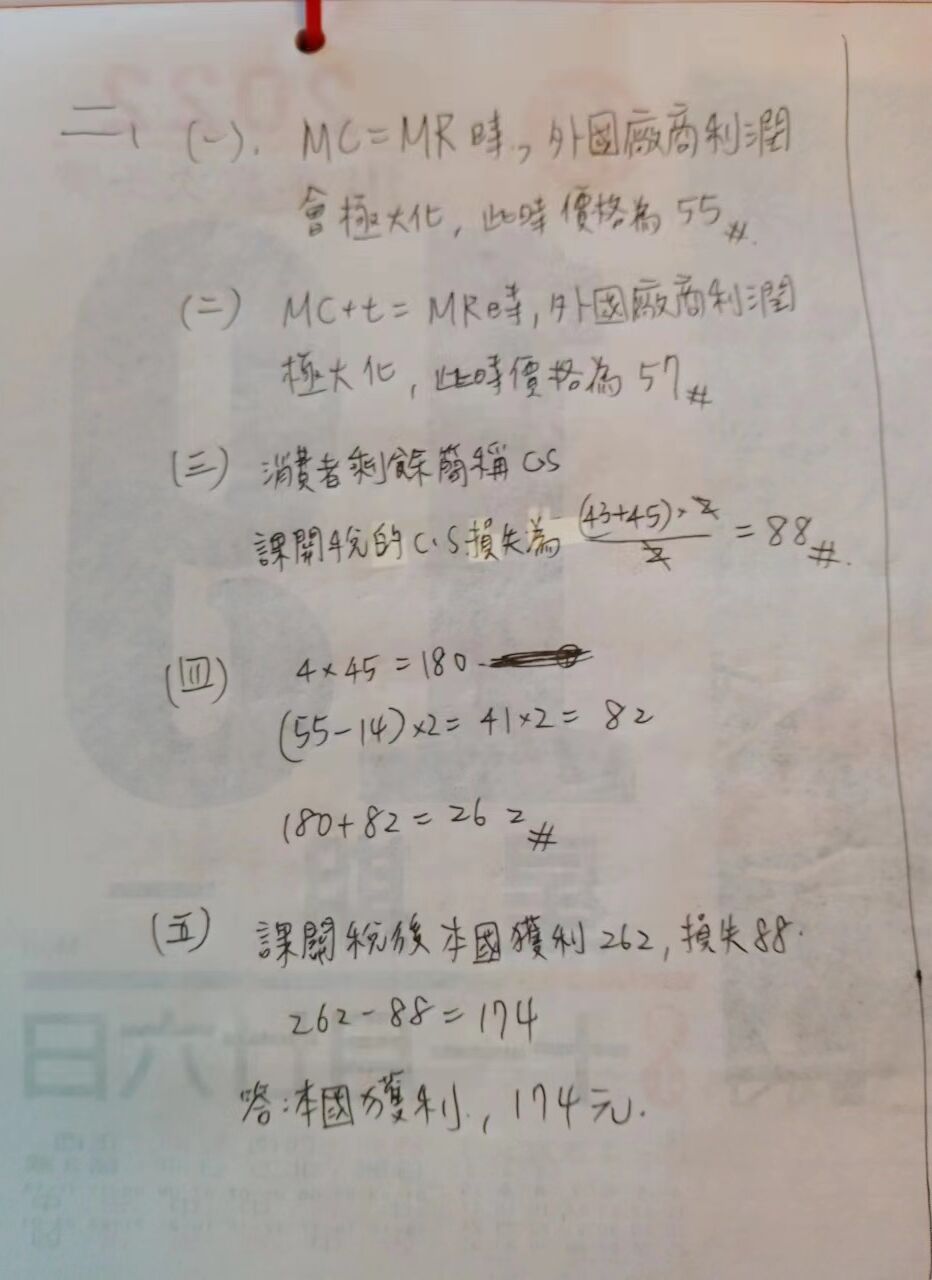 二、(一). MC=MR時, 外國廠商利潤
會極大化, 此時價格為55#.
(二) MC+t=MR時, 外國廠商利潤
極大化, 此時價格為57#
(三) 消費者剩餘簡稱CS
課關稅的C.S損失為 (43+45)×2/2 = 88#.
(四) 4×45=180
(55-14)×2=41×2=82
180+82=262#
(五) 課關稅後本國獲利262, 損失88.
262-88=174
答:本國獲利, 174元.